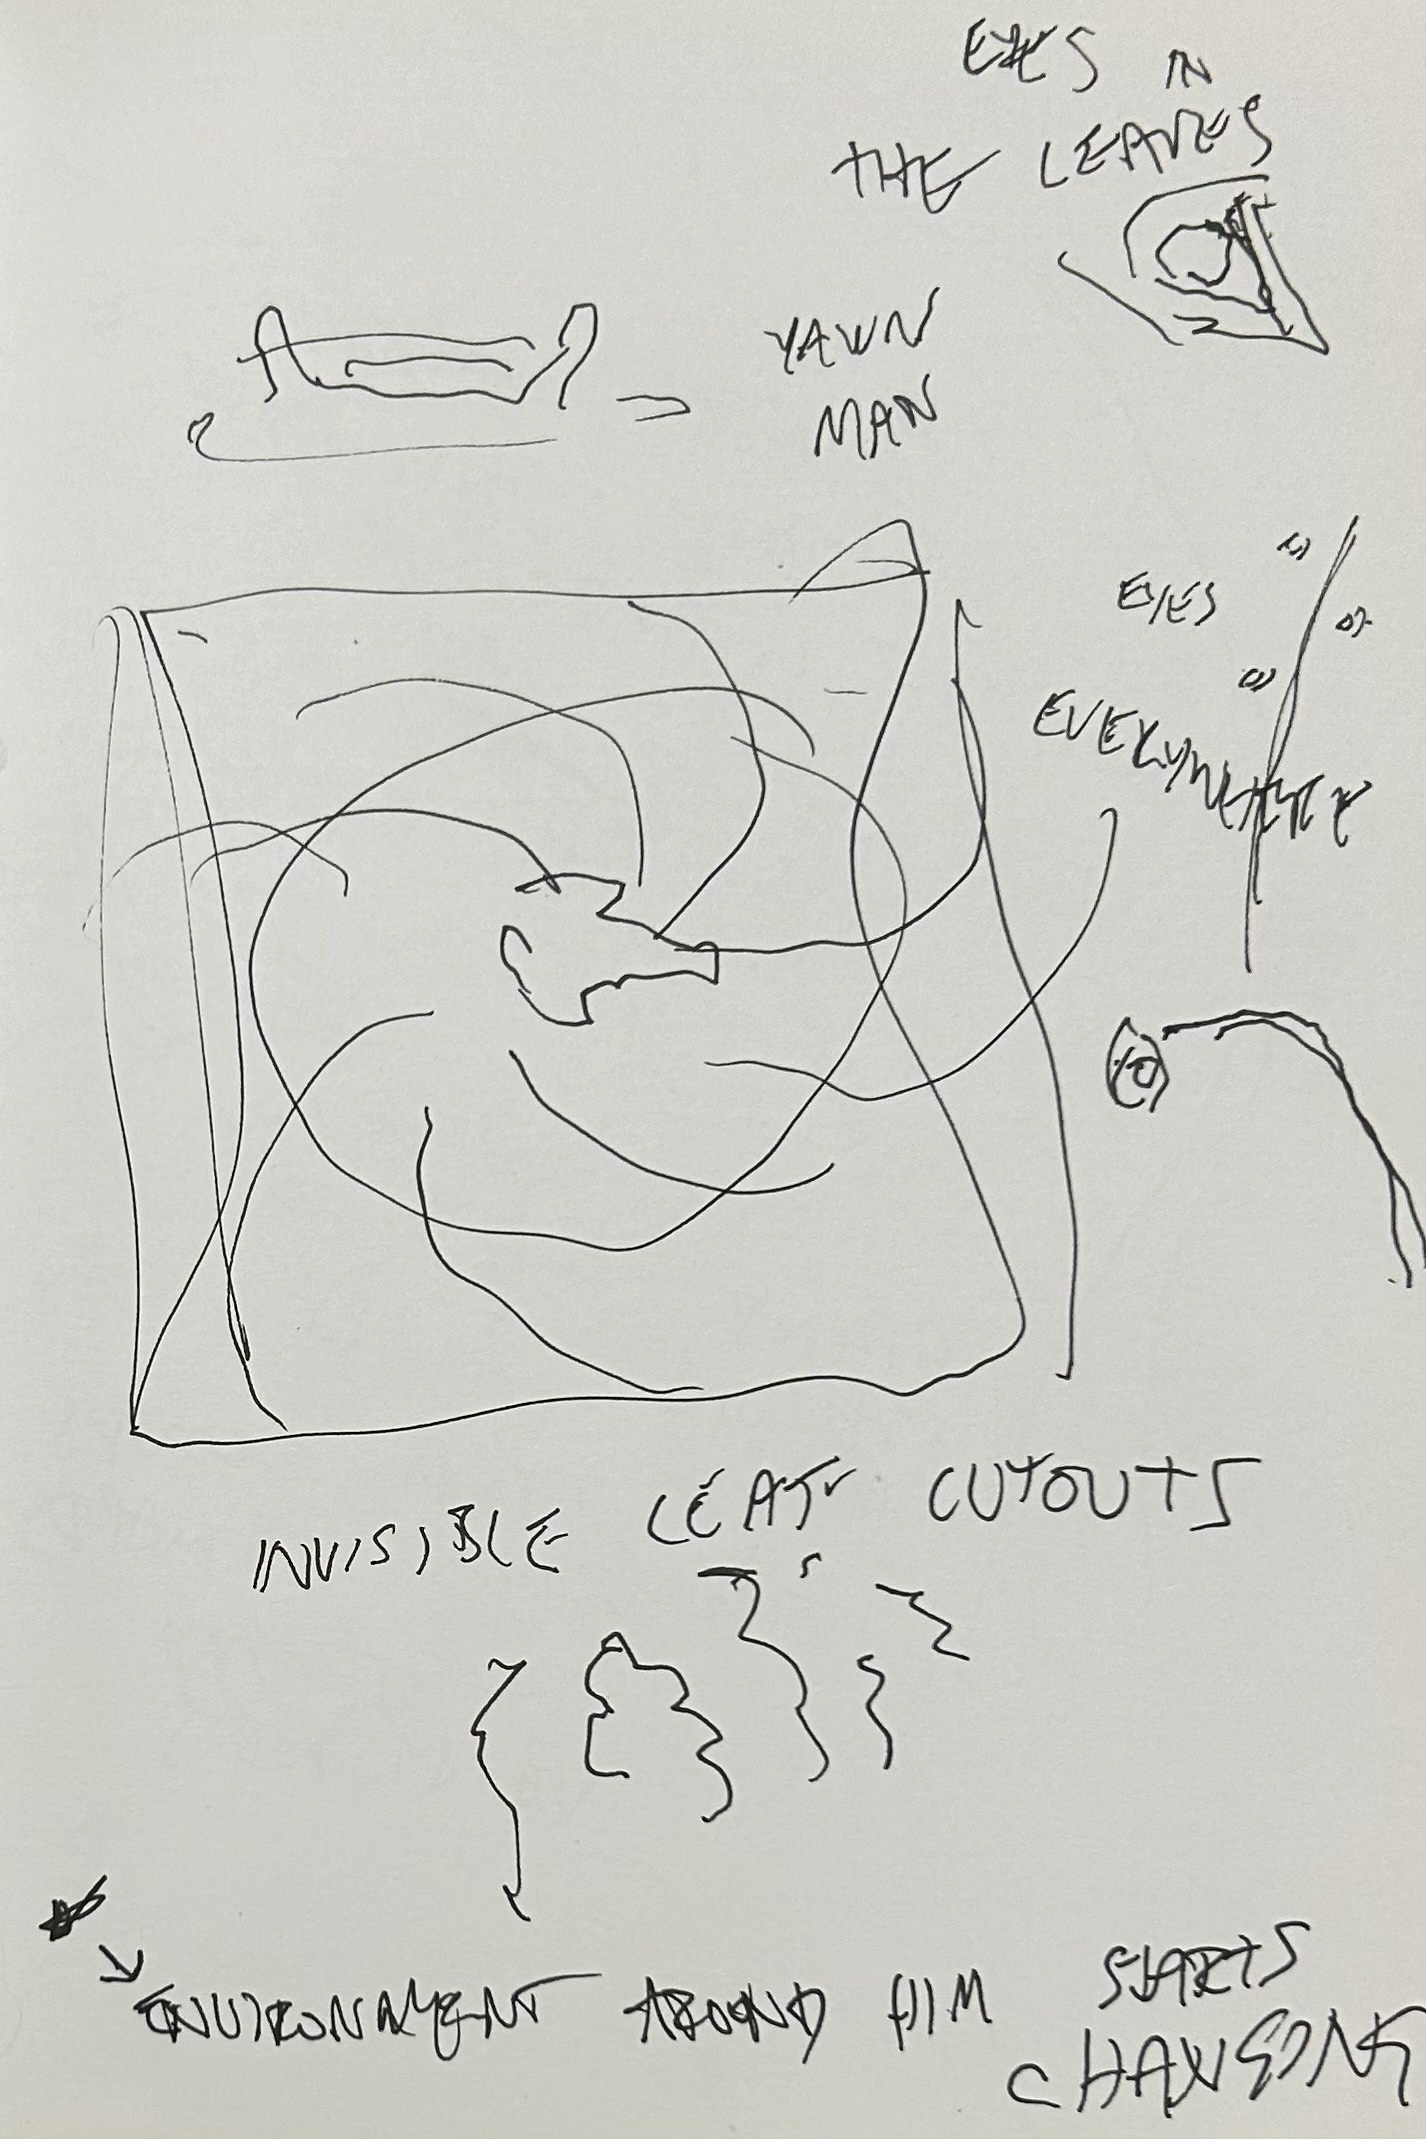 EYES IN
THE LEAVES
YAWN
MAN
EYES
EVERYWHERE
INVISIBLE LEAF CUTOUTS
ENVIRONMENT AROUND HIM STARTS
CHANGING